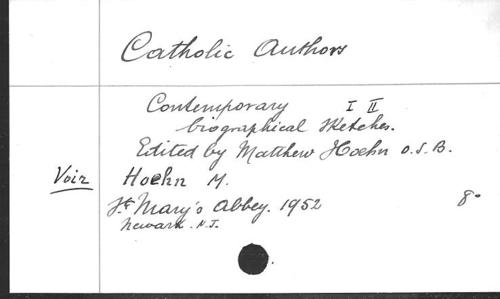 Catholic Authors
Contemporary I II
biographical sketches.
Edited by Matthew Hoehn O.S.B.
Voir Hoehn M.
St Mary's Abbey. 1952 8o
Newark. N.J.